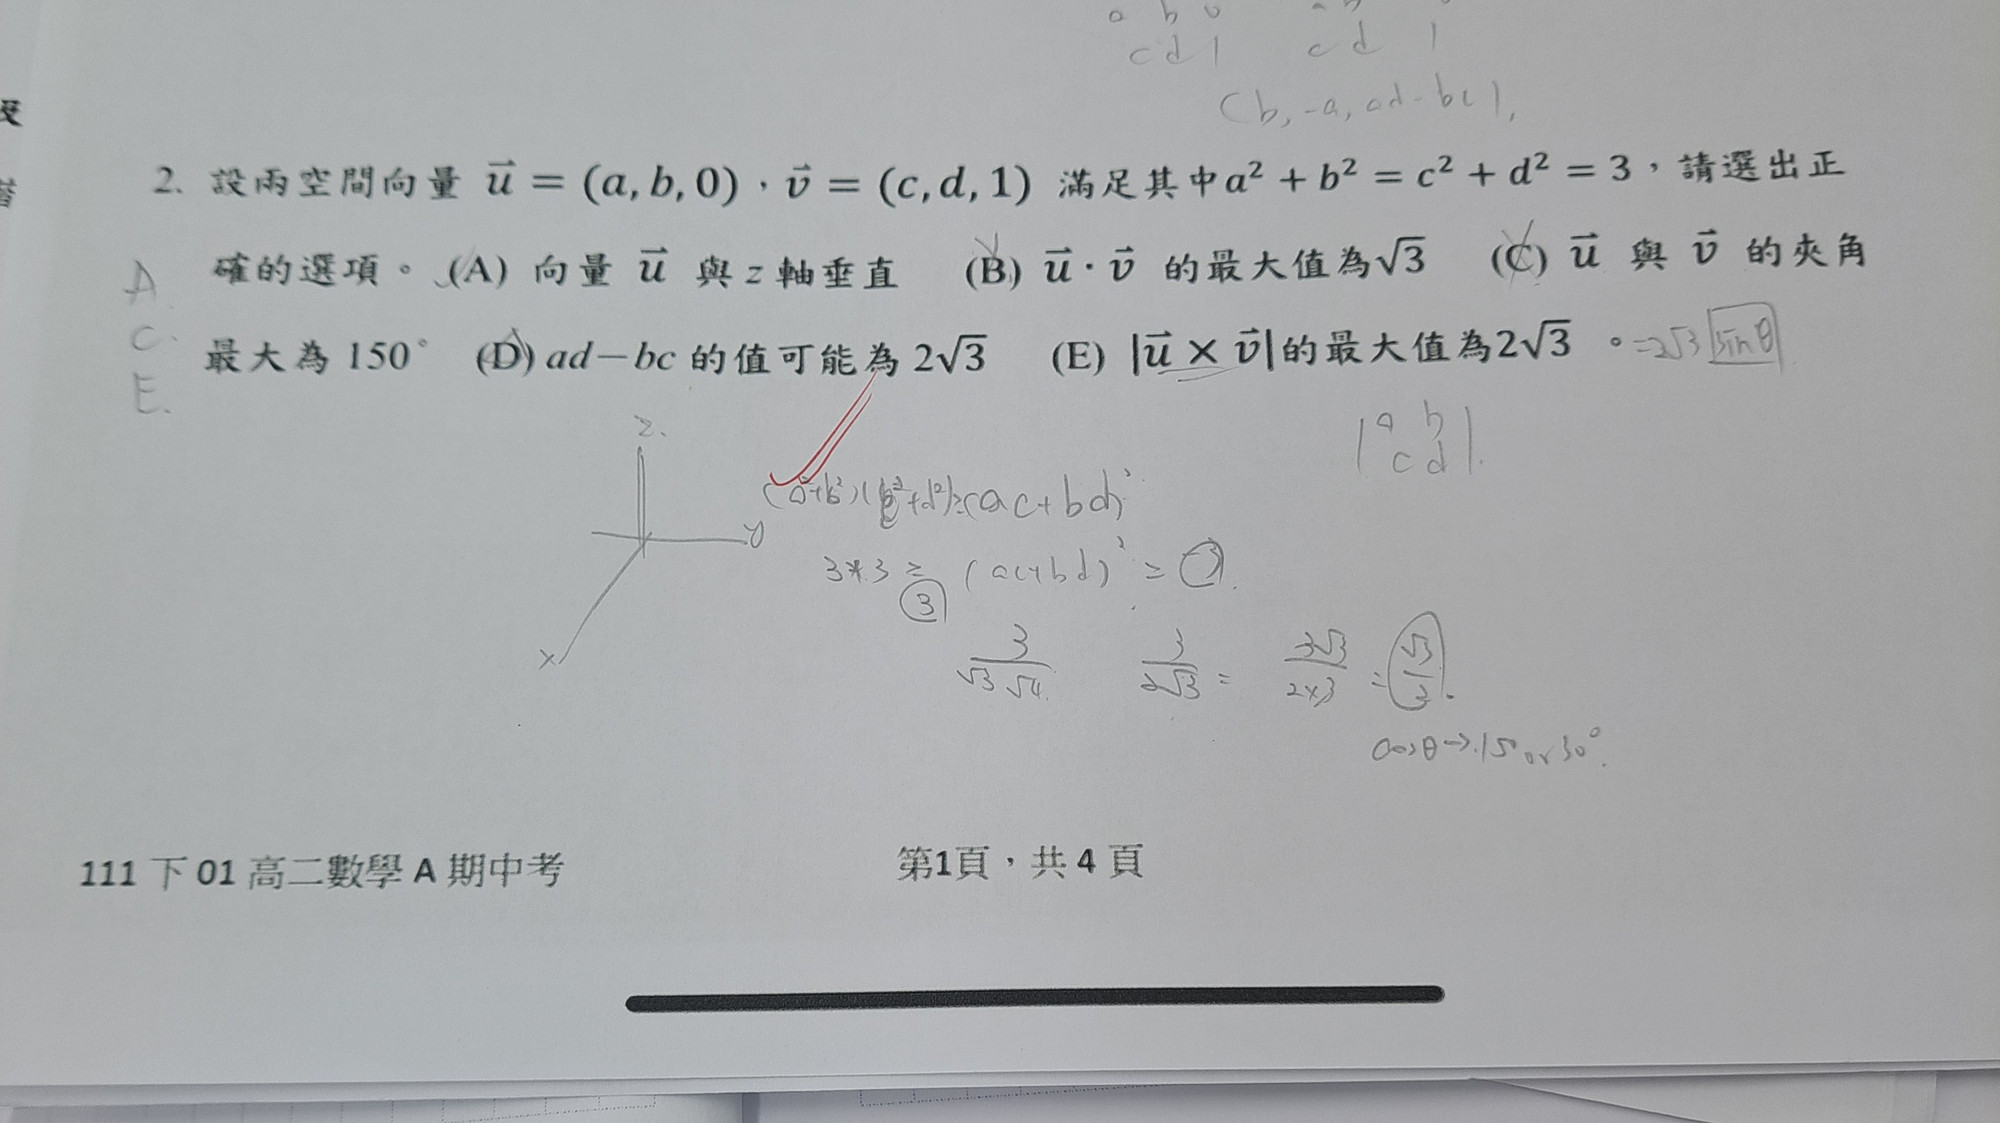 a b 0
c d 1 c d 1
(b, -a, ad-bc),
2. 設兩空間向量 u⃗ = (a, b, 0),v⃗ = (c, d, 1) 滿足其中a² + b² = c² + d² = 3,請選出正
確的選項。(A) 向量 u⃗ 與 z 軸垂直 (B) u⃗ · v⃗ 的最大值為√3 (C) u⃗ 與 v⃗ 的夾角
最大為 150° (D) ad−bc 的值可能為 2√3 (E) |u⃗ × v⃗|的最大值為2√3 。=2√3 sinθ
A.
C.
E.
z.
y
x
|a b|
|c d|.
(a²+b²)(c²+d²)≥(ac+bd)²
3*3 ≥ (ac+bd)² ≥ -3.
3
3/√3√4. 3/2√3 = 3√3/2×3 = √3/2.
cosθ→150 or 30°.
111 下 01 高二數學 A 期中考
第1頁,共 4 頁